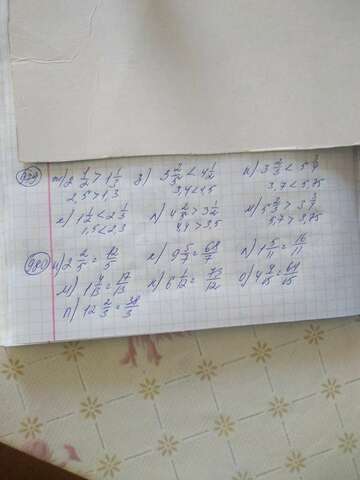 ж) 2 1/2 > 1 1/3 з) 3 2/5 < 4 1/2 и) 3 2/3 < 5 3/4
2,5 > 1,3 3,4 < 4,5 3,7 < 5,75
к) 1 1/2 < 2 1/3 л) 4 2/5 > 3 1/2 м) 5 2/3 > 3 3/4
1,5 < 2,3 4,4 > 3,5 5,7 > 3,75
980 и) 2 2/5 = 12/5 к) 9 5/7 = 68/7 л) 1 5/11 = 16/11
м) 1 4/13 = 17/13 н) 6 1/12 = 73/12 о) 4 4/15 = 64/15
п) 12 2/3 = 38/3